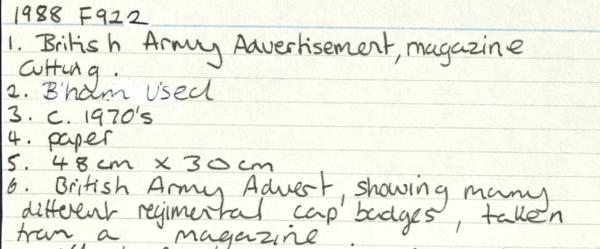 1988 F922
1. British Army Advertisement, magazine
cutting.
2. B'ham Used
3. c. 1970's
4. paper
5. 48cm x 30cm
6. British Army Advert, showing many
different regimental cap badges, taken
from a magazine.